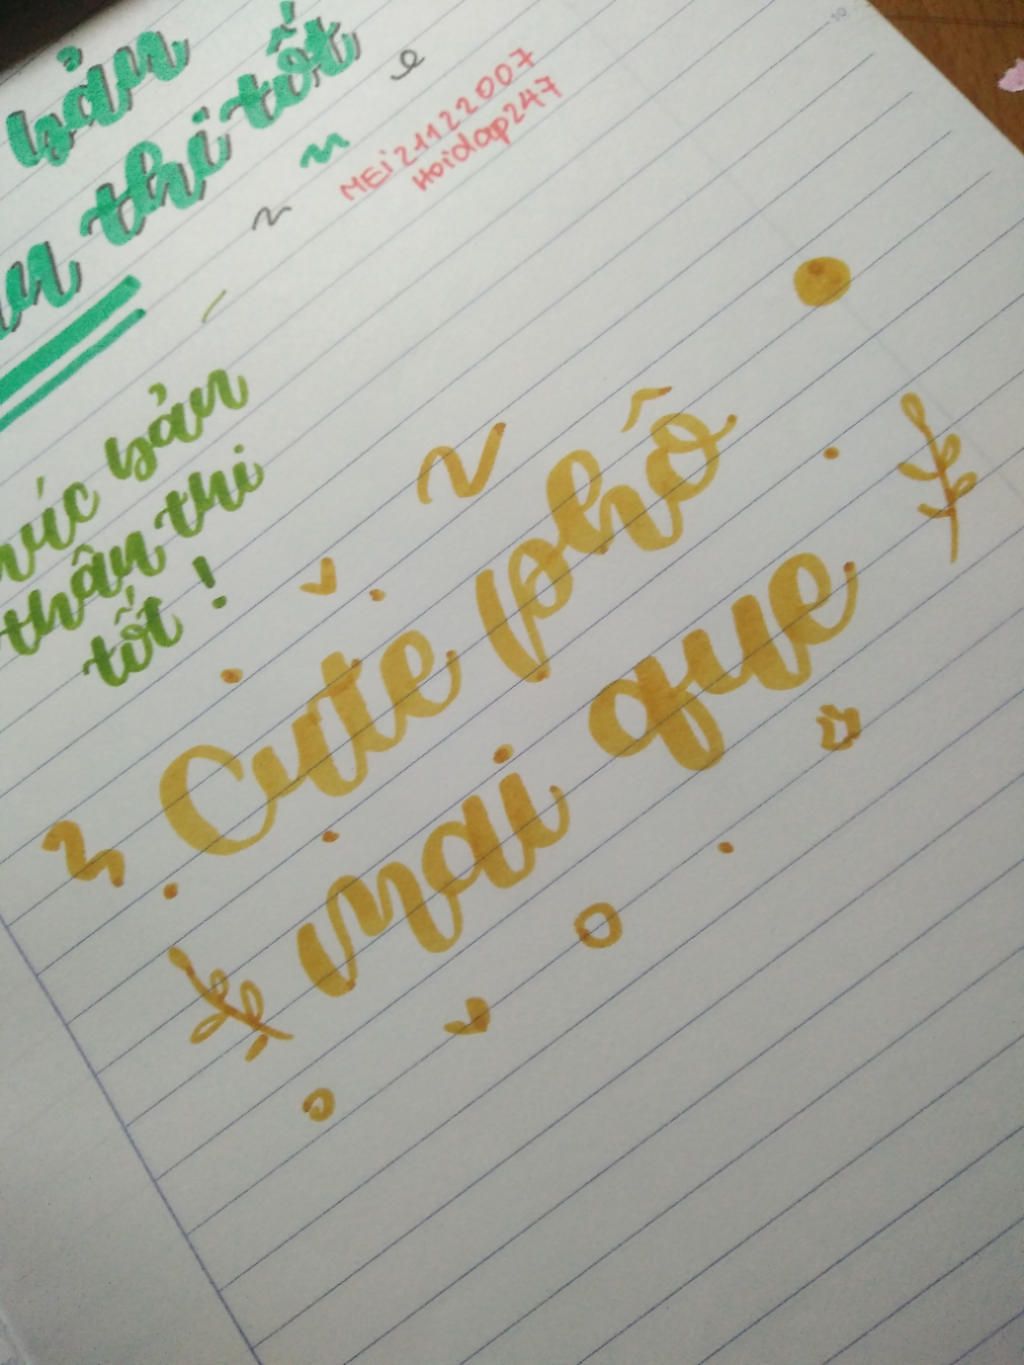 bản
thi tốt
MEi21122007
Hoidap247
bản
thân thi
tốt !
Cute phô
mai que